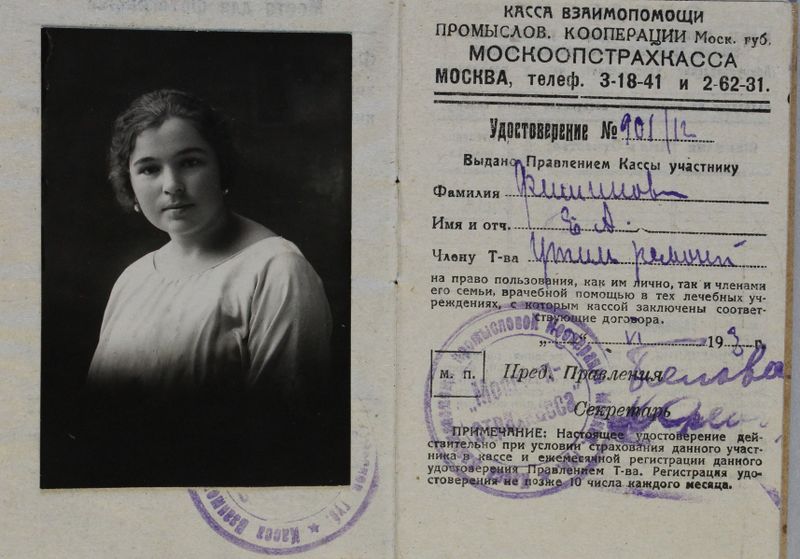 КАССА ВЗАИМОПОМОЩИ
ПРОМЫСЛОВ. КООПЕРАЦИИ Моск. губ.
МОСКООПСТРАХКАССА
МОСКВА, телеф. 3-18-41 и 2-62-31.
Удостоверение № 901/12
Выдано Правлением Кассы участнику
Фамилия
Имя и отч. Е А.
Члену Т-ва
на право пользования, как им лично, так и членами
его семьи, врачебной помощью в тех лечебных уч-
реждениях, с которым кассой заключены соответ-
ствующие договора.
„ “ VI 193 г.
М. П. Пред. Правления Белова
Секретарь
ПРИМЕЧАНИЕ: Настоящее удостоверение дей-
ствительно при условии страхования данного участ-
ника в кассе и ежемесячной регистрации данного
удостоверения Правлением Т-ва. Регистрация удо-
стоверения не позже 10 числа каждого месяца.